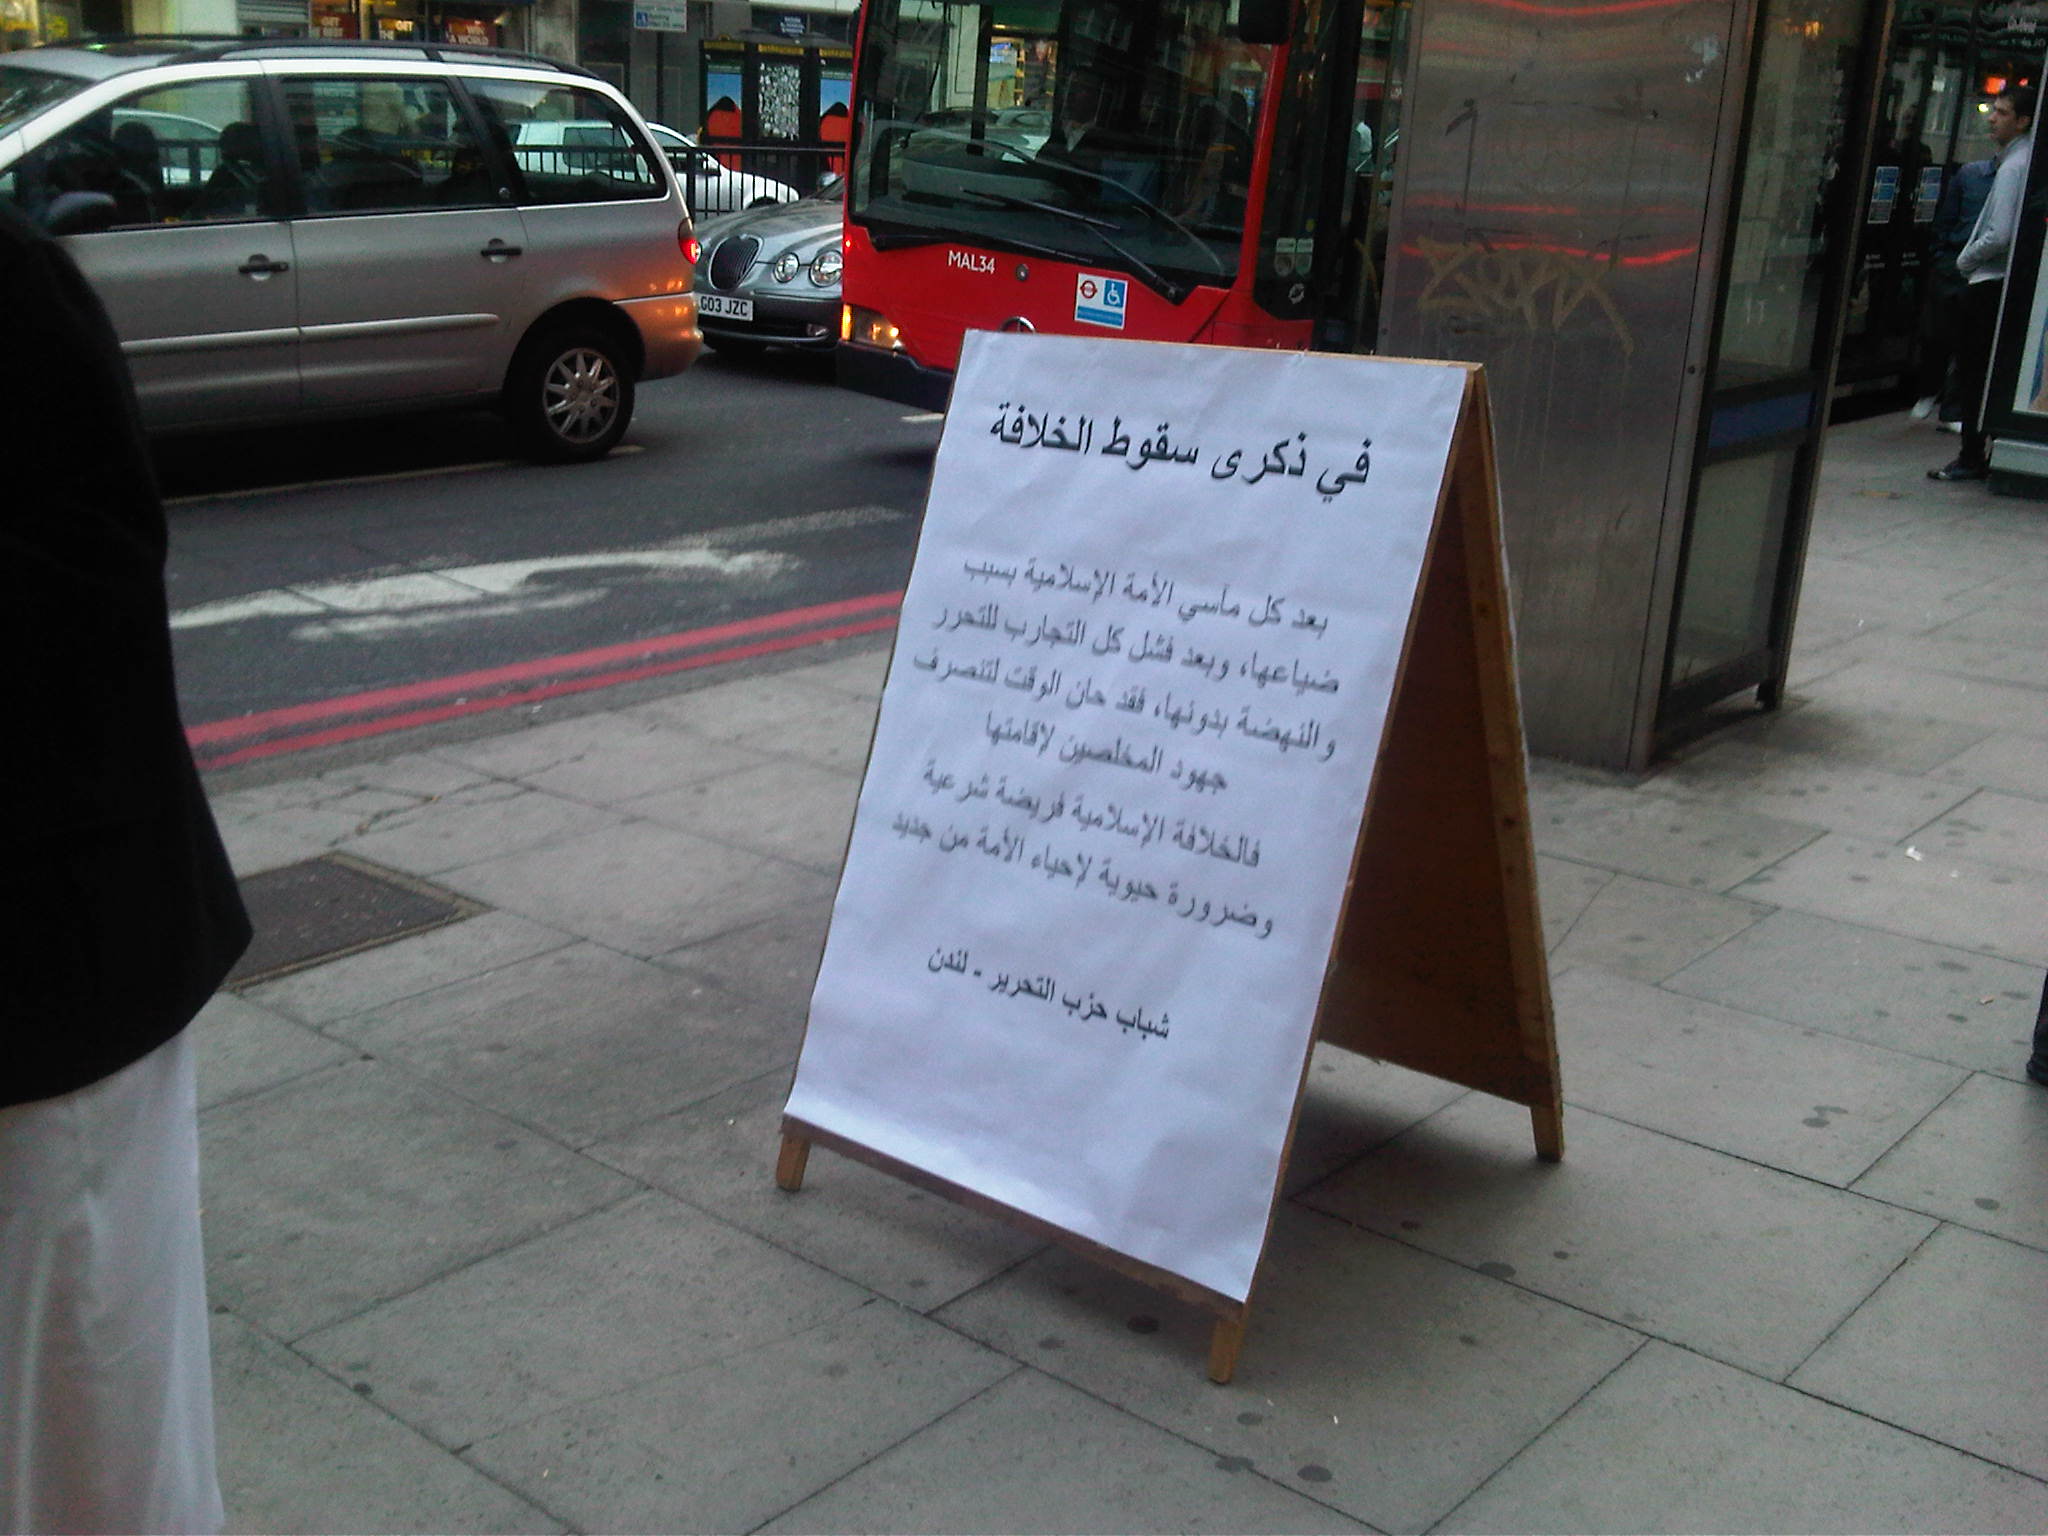 في ذكرى سقوط الخلافة
بعد كل مآسي الأمة الإسلامية بسبب
ضياعها، وبعد فشل كل التجارب للتحرر
والنهضة بدونها، فقد حان الوقت لتنصرف
جهود المخلصين لإقامتها
فالخلافة الإسلامية فريضة شرعية
وضرورة حيوية لإحياء الأمة من جديد
شباب حزب التحرير - لندن
MAL34
G03 JZC
GET